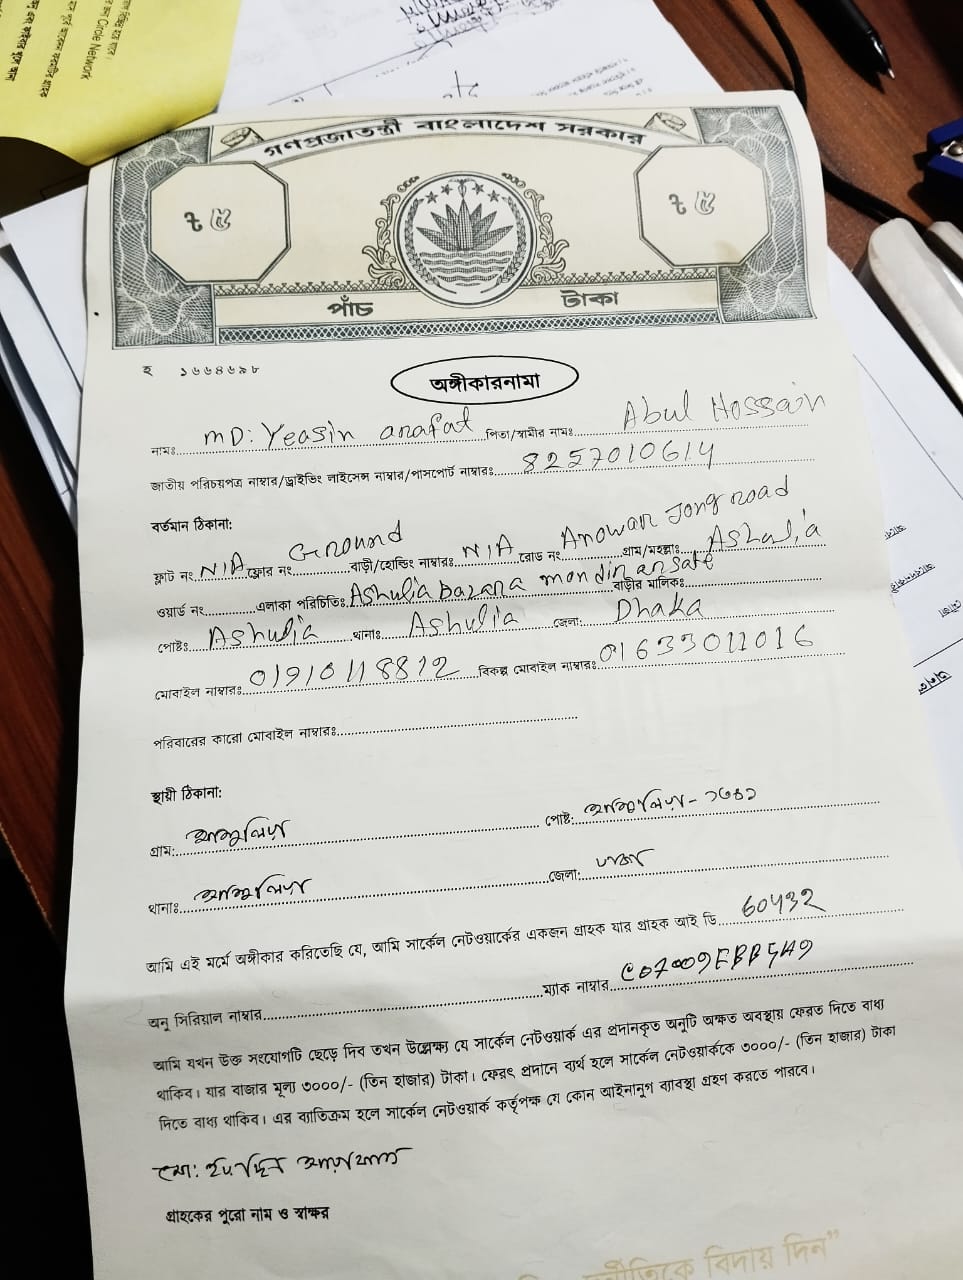 Circle Network
গণপ্রজাতন্ত্রী বাংলাদেশ সরকার
৳ ৫ ৳ ৫
পাঁচ টাকা
হ ১৬৬৪৬৯৮
অঙ্গীকারনামা
নামঃ MD: Yeasin arafat পিতা/স্বামীর নামঃ Abul Hossain
জাতীয় পরিচয়পত্র নাম্বার/ড্রাইভিং লাইসেন্স নাম্বার/পাসপোর্ট নাম্বারঃ 8257010614
বর্তমান ঠিকানা:
ফ্লাট নং N/A ফ্লোর নং Ground বাড়ী/হোল্ডিং নাম্বারঃ N/A রোড নং Anowar Jong road গ্রাম/মহল্লাঃ Ashulia
ওয়ার্ড নং এলাকা পরিচিতিঃ Ashulia bazara mondir ar sate বাড়ীর মালিকঃ
পোষ্টঃ Ashulia থানাঃ Ashulia জেলা: Dhaka
মোবাইল নাম্বারঃ 01910118812 বিকল্প মোবাইল নাম্বারঃ 01633011016
পরিবারের কারো মোবাইল নাম্বারঃ
স্থায়ী ঠিকানা:
গ্রাম: আশুলিয়া পোষ্ট: আশুলিয়া - ১৩৪১
থানাঃ আশুলিয়া জেলা: ঢাকা
আমি এই মর্মে অঙ্গীকার করিতেছি যে, আমি সার্কেল নেটওয়ার্কের একজন গ্রাহক যার গ্রাহক আই ডি 60432
অনু সিরিয়াল নাম্বার ম্যাক নাম্বার
আমি যখন উক্ত সংযোগটি ছেড়ে দিব তখন উল্লেক্ষ্য যে সার্কেল নেটওয়ার্ক এর প্রদানকৃত অনুটি অক্ষত অবস্থায় ফেরত দিতে বাধ্য
থাকিব। যার বাজার মূল্য ৩০০০/- (তিন হাজার) টাকা। ফেরৎ প্রদানে ব্যর্থ হলে সার্কেল নেটওয়ার্ককে ৩০০০/- (তিন হাজার) টাকা
দিতে বাধ্য থাকিব। এর ব্যাতিক্রম হলে সার্কেল নেটওয়ার্ক কর্তৃপক্ষ যে কোন আইনানুগ ব্যাবস্থা গ্রহণ করতে পারবে।
মো: ইয়াছিন আরাফাত
গ্রাহকের পুরো নাম ও স্বাক্ষর
বিদায় দিন”